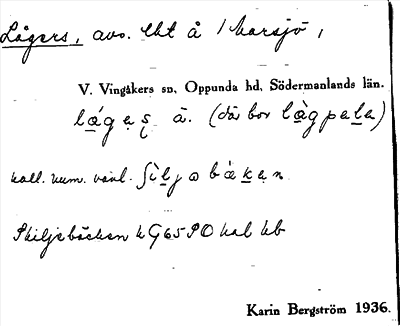 Lågers, avs. lht å /Marsjö,
V. Vingåkers sn, Oppunda hd, Södermanlands län.
lá̱gẹṣ å. (där bor là̱gpaḻa)
kall. num. vanl.
Skiljebäcken k G65SO hal hb
Karin Bergström 1936.